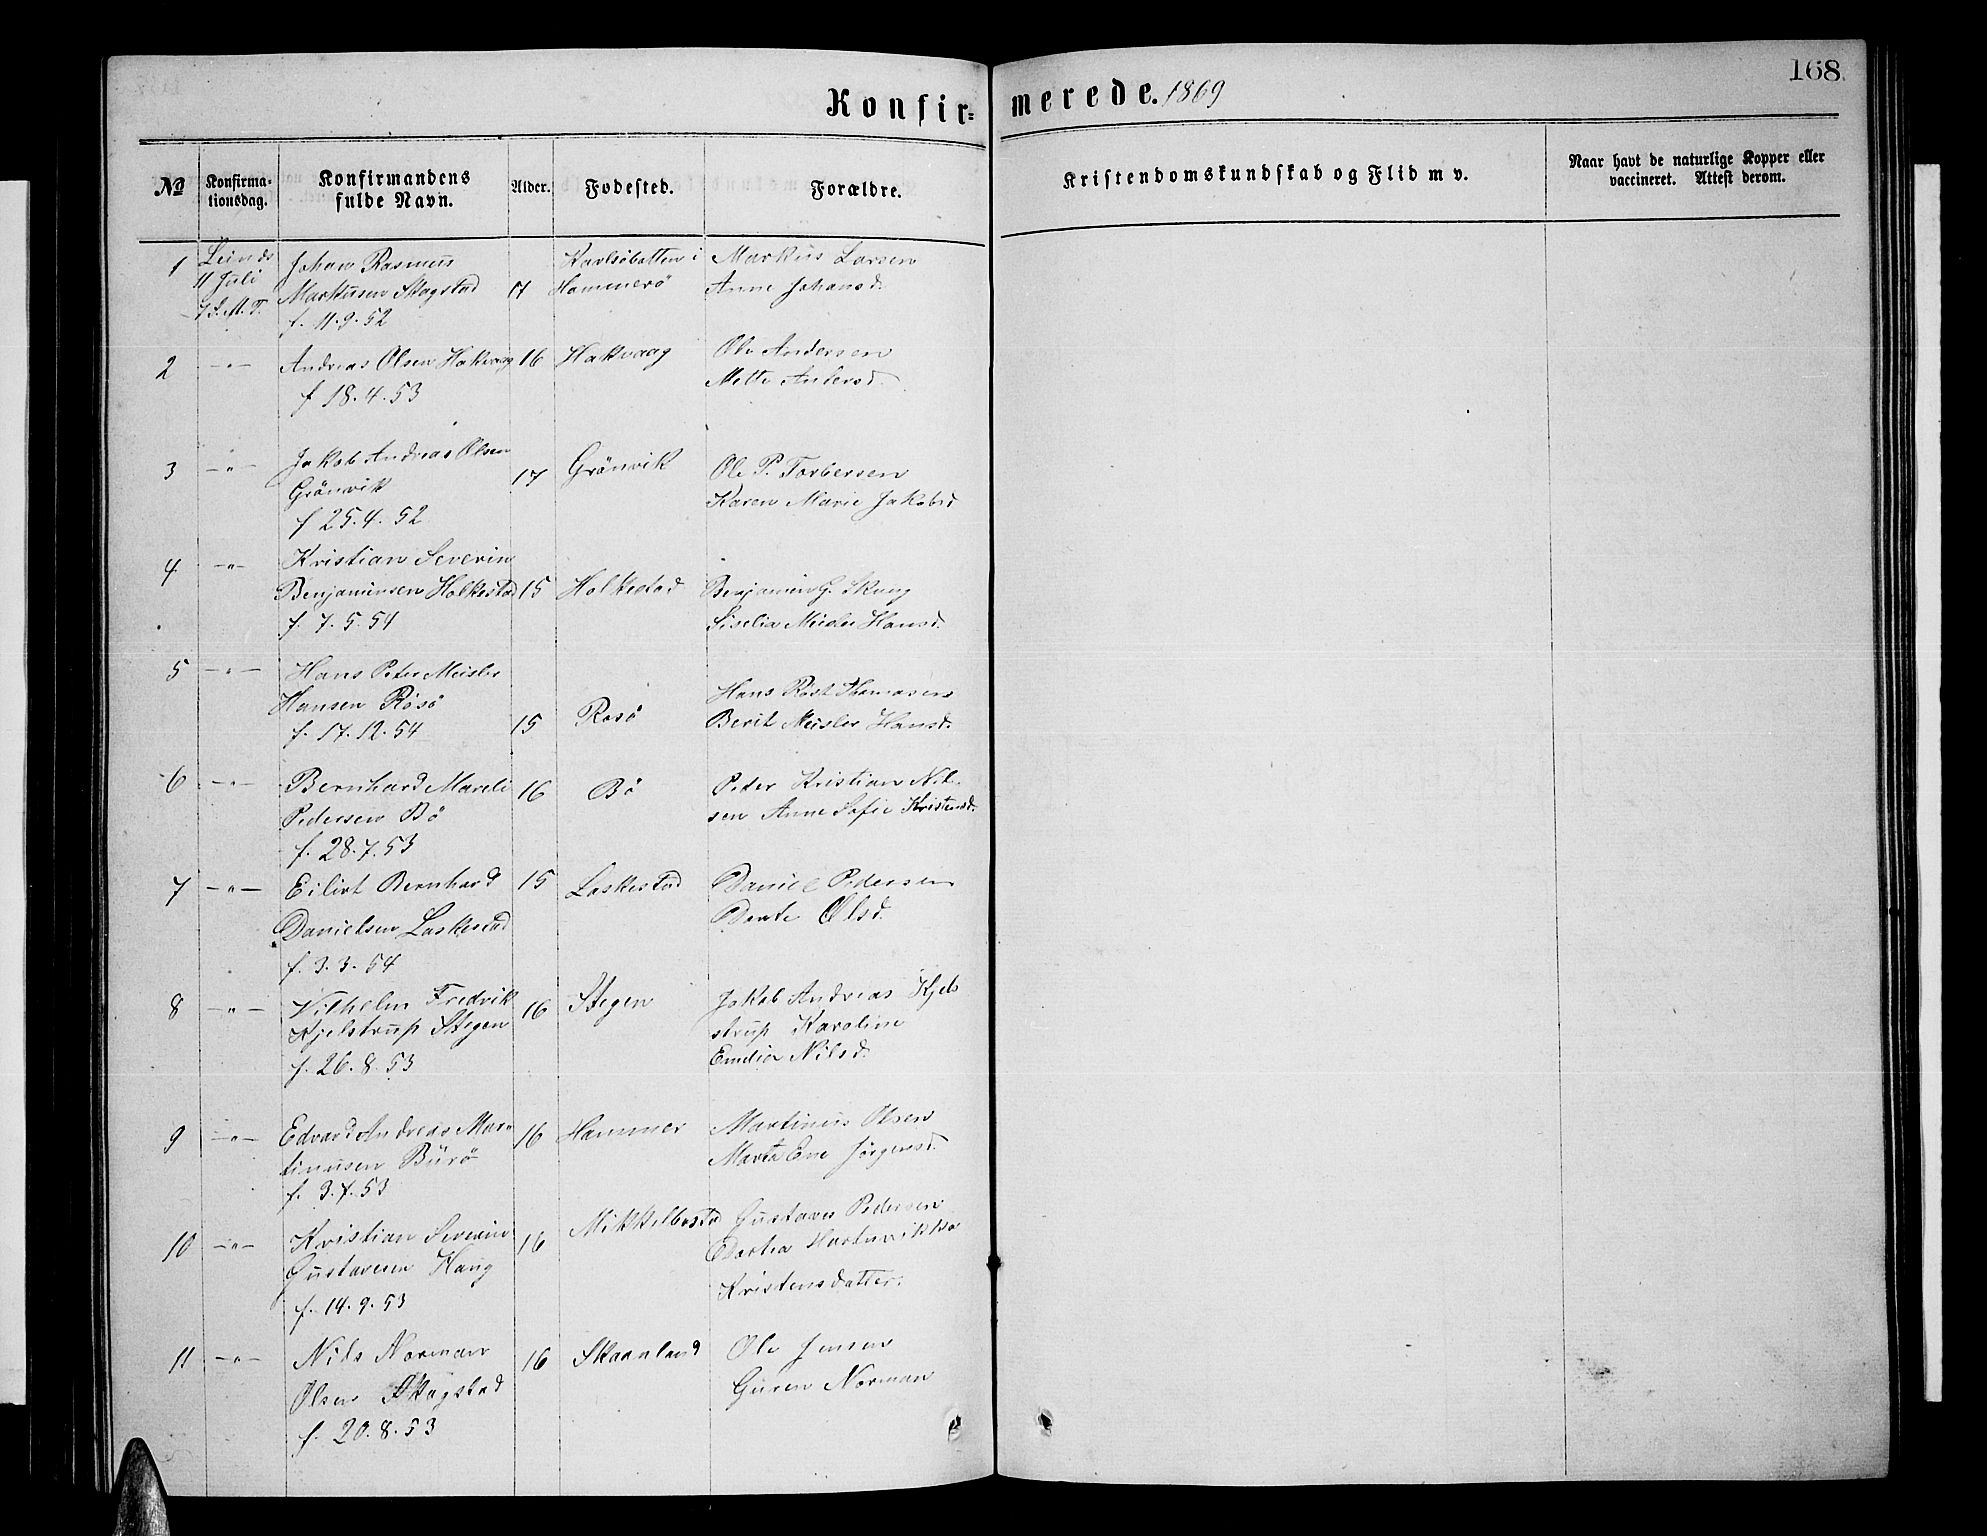 168.
Konfir=
merede. 1869
No
Konfirma=
tionsdag.
Konfirmandens
fulde Navn.
Alder.
Fødested.
Forældre.
Kristendomskundskab og Flid m v.
Naar havt de naturlige Kopper eller
vaccineret. Attest derom.
1
11 Juli
Johan Rasmus
Markusen Skogstad
f. 11.9.52
17
i
Hammerö
Markus Larsen
Anne Johansd.
2
-"-
Andreas Olsen Hakvaag
f 18.4.53
16
Hakvaag
Ole Andersen
Mette Andersd.
3
-"-
Jakob Andreas Olsen
Grönvik
f 25.4.52
17
Grönvik
Ole P. Torbersen
Karen Marie Jakobsd
4
-"-
Kristian Severin
Benjaminsen Holkestad
f. 7.5.54
15
Holkestad
Benjamin G. Skaug
Sirelia Meisler Hansd.
5
-"-
Hans Peter Meisler
Hansen Rösö
f. 17.12.54
15
Rosö
Hans Röst Thomasen
Berit Meisler Hansd.
6
-"-
Bernhard Mareli
Pedersen Bö
f. 28.7.53
16
Bö
Peter Kristian Nil-
sen Anne Sofie Kristensd.
7
-"-
Eilert Bernhard
Danielsen Laskestad
f. 3.3.54
15
Laskestad
Daniel Pedersen
Dorte Olsd.
8
-"-
Vilhelm Fredrik
Kjelstrup Stegen
f. 26.8.53
16
Stegen
Jakob Andreas Kjel
strup Karoline
Emelia Nilsd.
9
-"-
Edvard Andreas Mar-
tinusen Burö
f. 3.7.53
16
Hammer
Martinus Olsen
Marta Ene Jörgensd.
10
-"-
Kristian Severin
Gustavsen Haug
f. 14.9.53
16
Mikkelbostad
Gustav Pedersen
Dortea Hartvikka
Kristensdatter.
11
-"-
Nils Norman
Olsen Skogstad
f. 20.8.53
16
Skaanland
Ole Jensen
Guren Norman